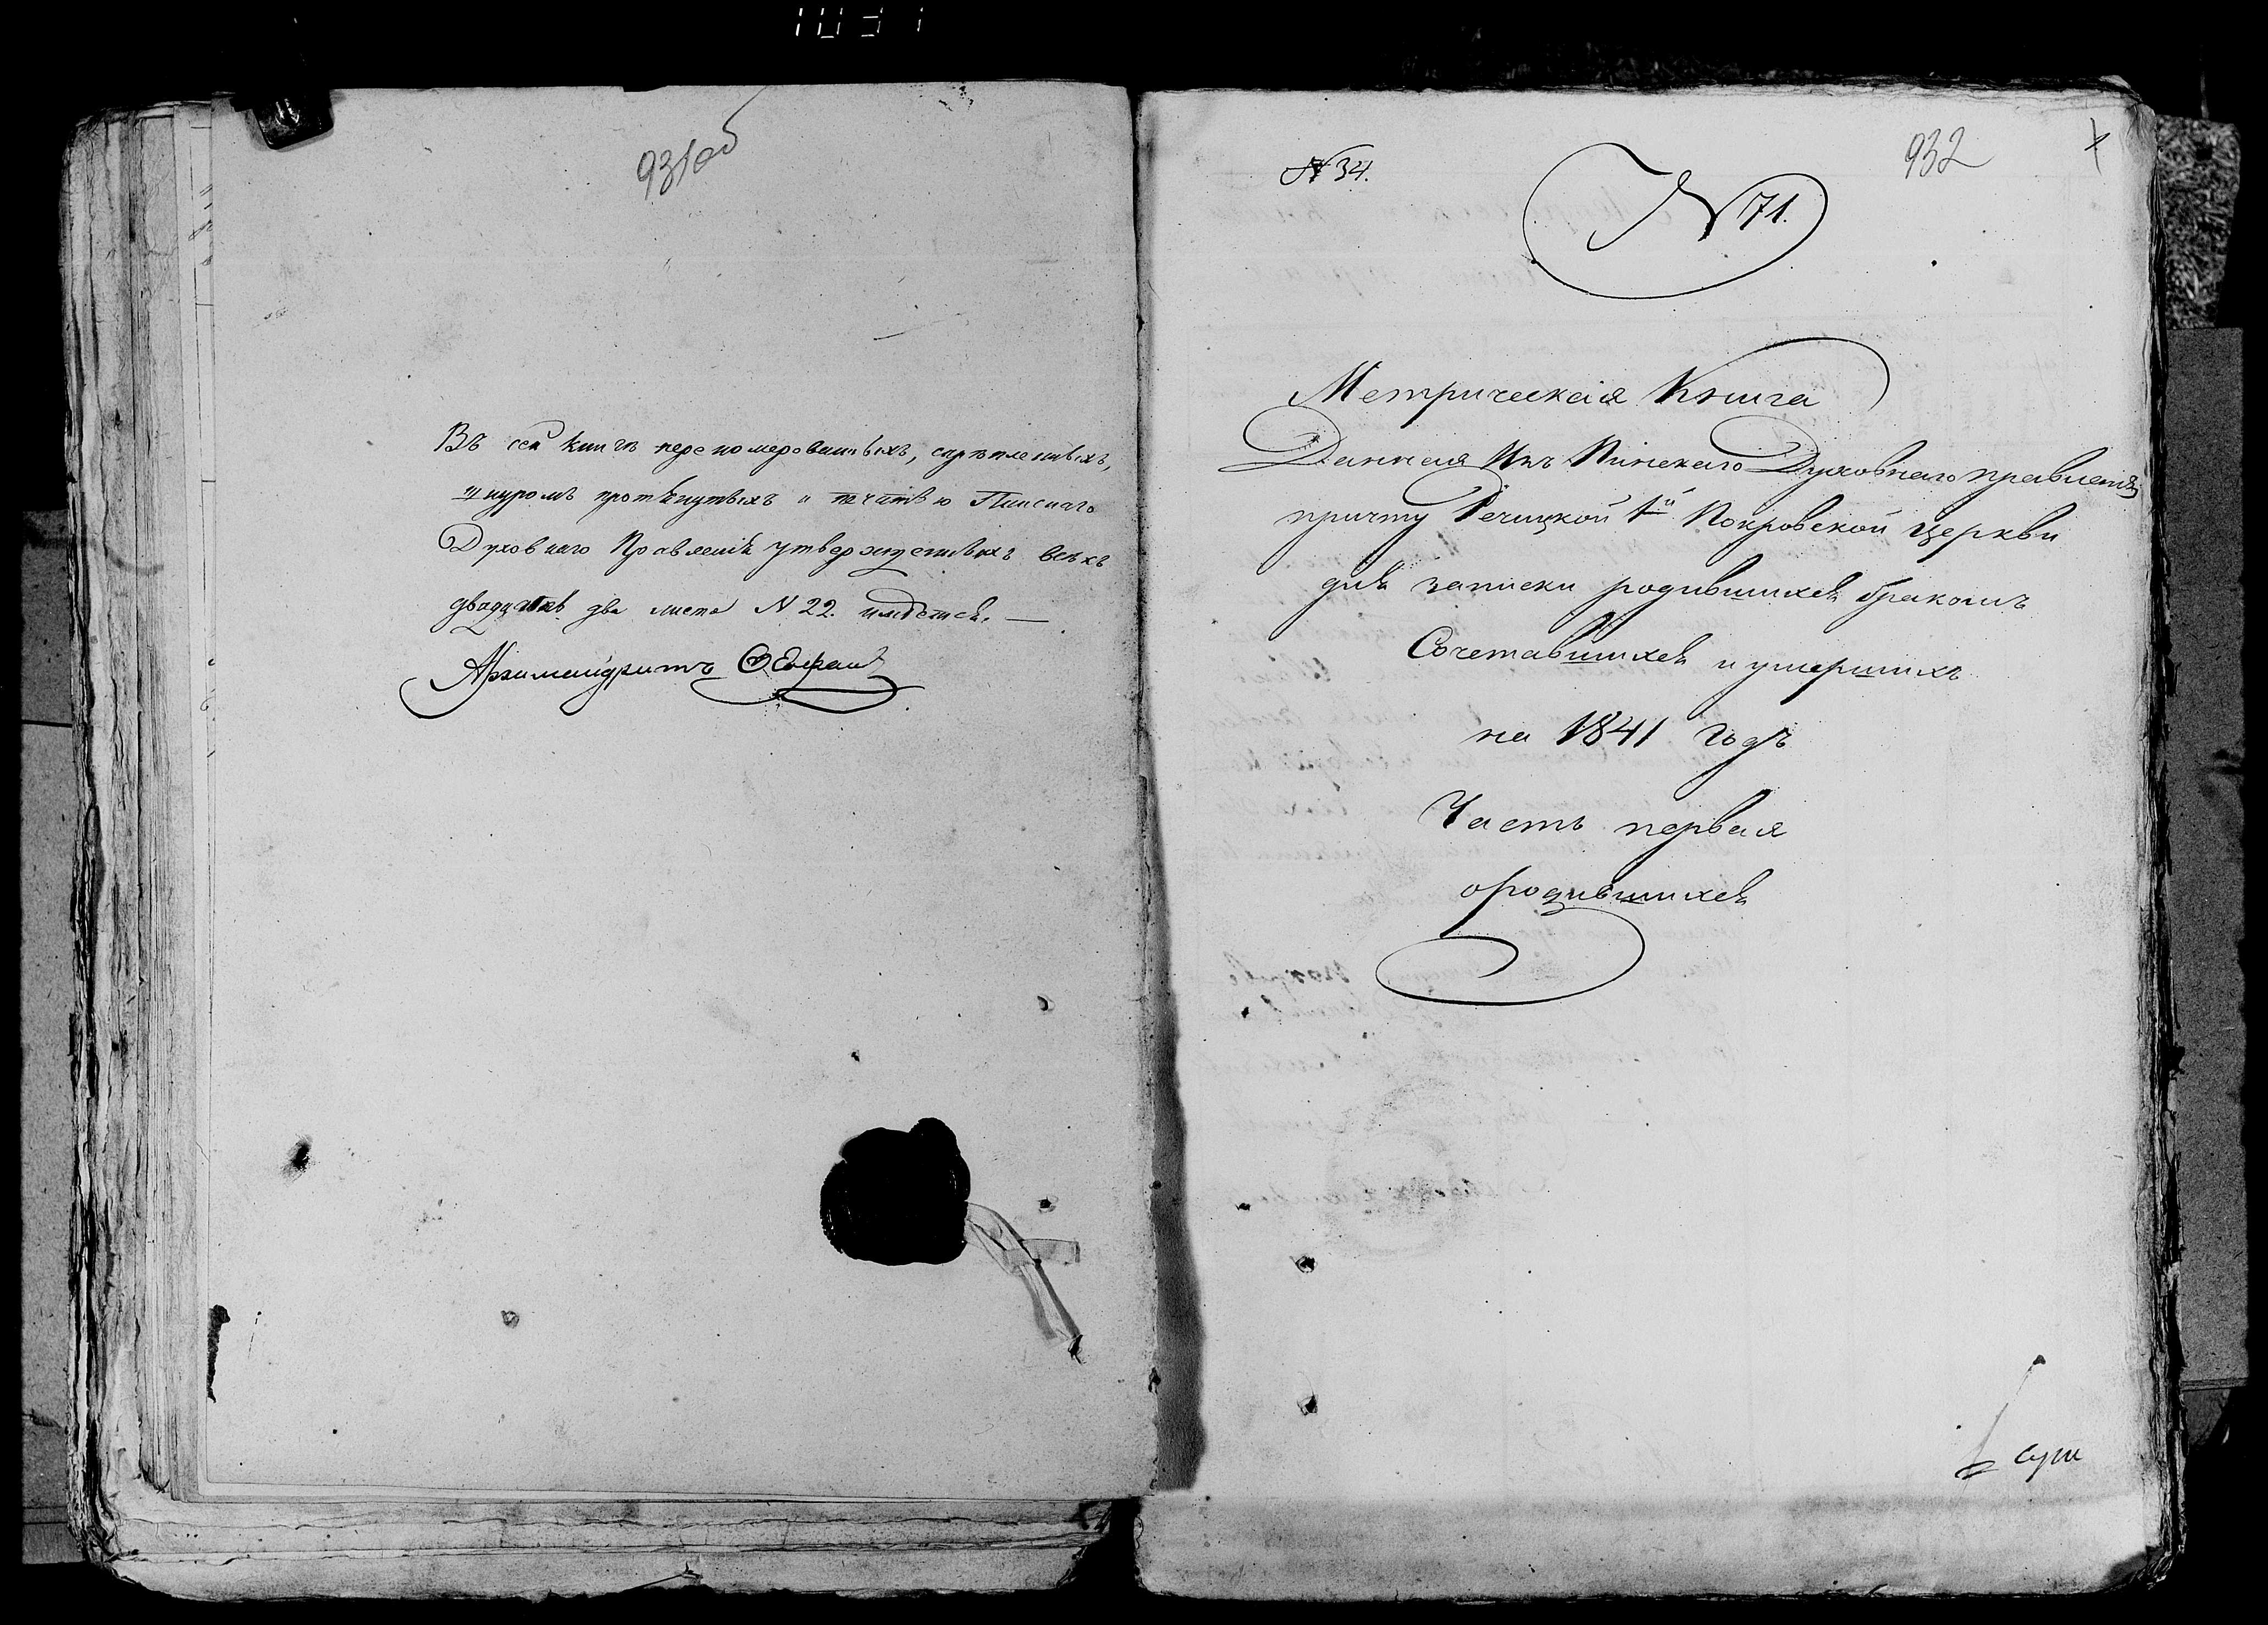 931об
Въ сей книгѣ перенумерованныхъ, скрѣпленныхъ,
шнуромъ протянутыхъ и печатью Пинскаго
Духовнаго Правленія утвержденныхъ всѣхъ
двадцать два листа N 22. имѣется. —
Архимандритъ
932
N 34.
N 71.
Метрическая Книга
Данная Изъ Пинскаго Духовнаго правленія
причту Речицкой 1й Покровской церкви
для записки родившихся бракомъ
Сочетавшихся и умершихъ
на 1841 годъ
Часть первая
о родившихся